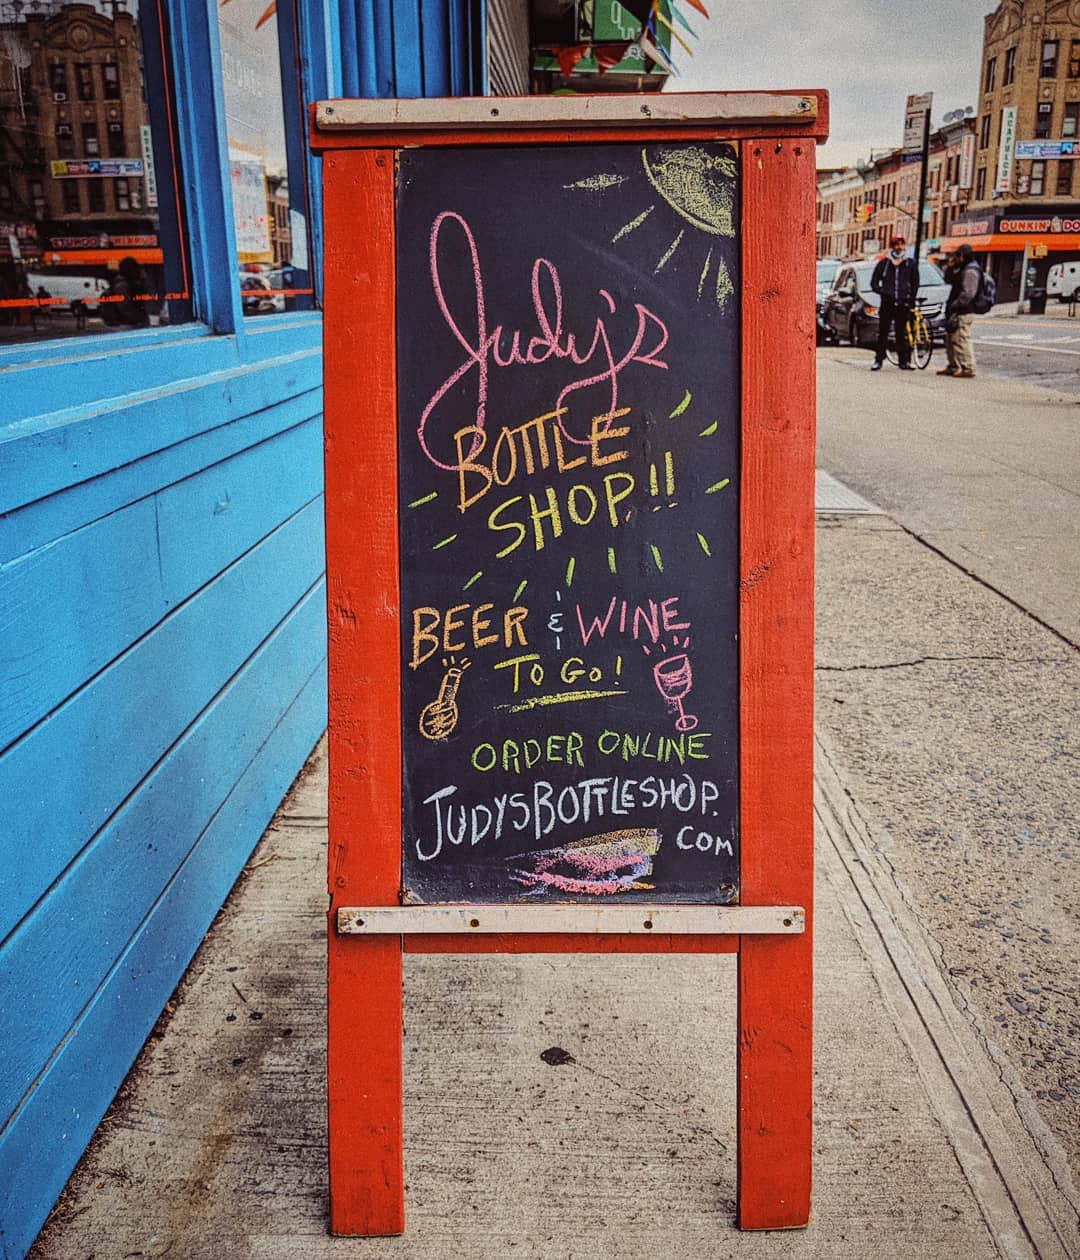 Judy's
BOTTLE
SHOP!!
BEER & WINE
TO GO!
ORDER ONLINE
JUDYSBOTTLESHOP.
COM
ACAPULCO
DUNKIN'